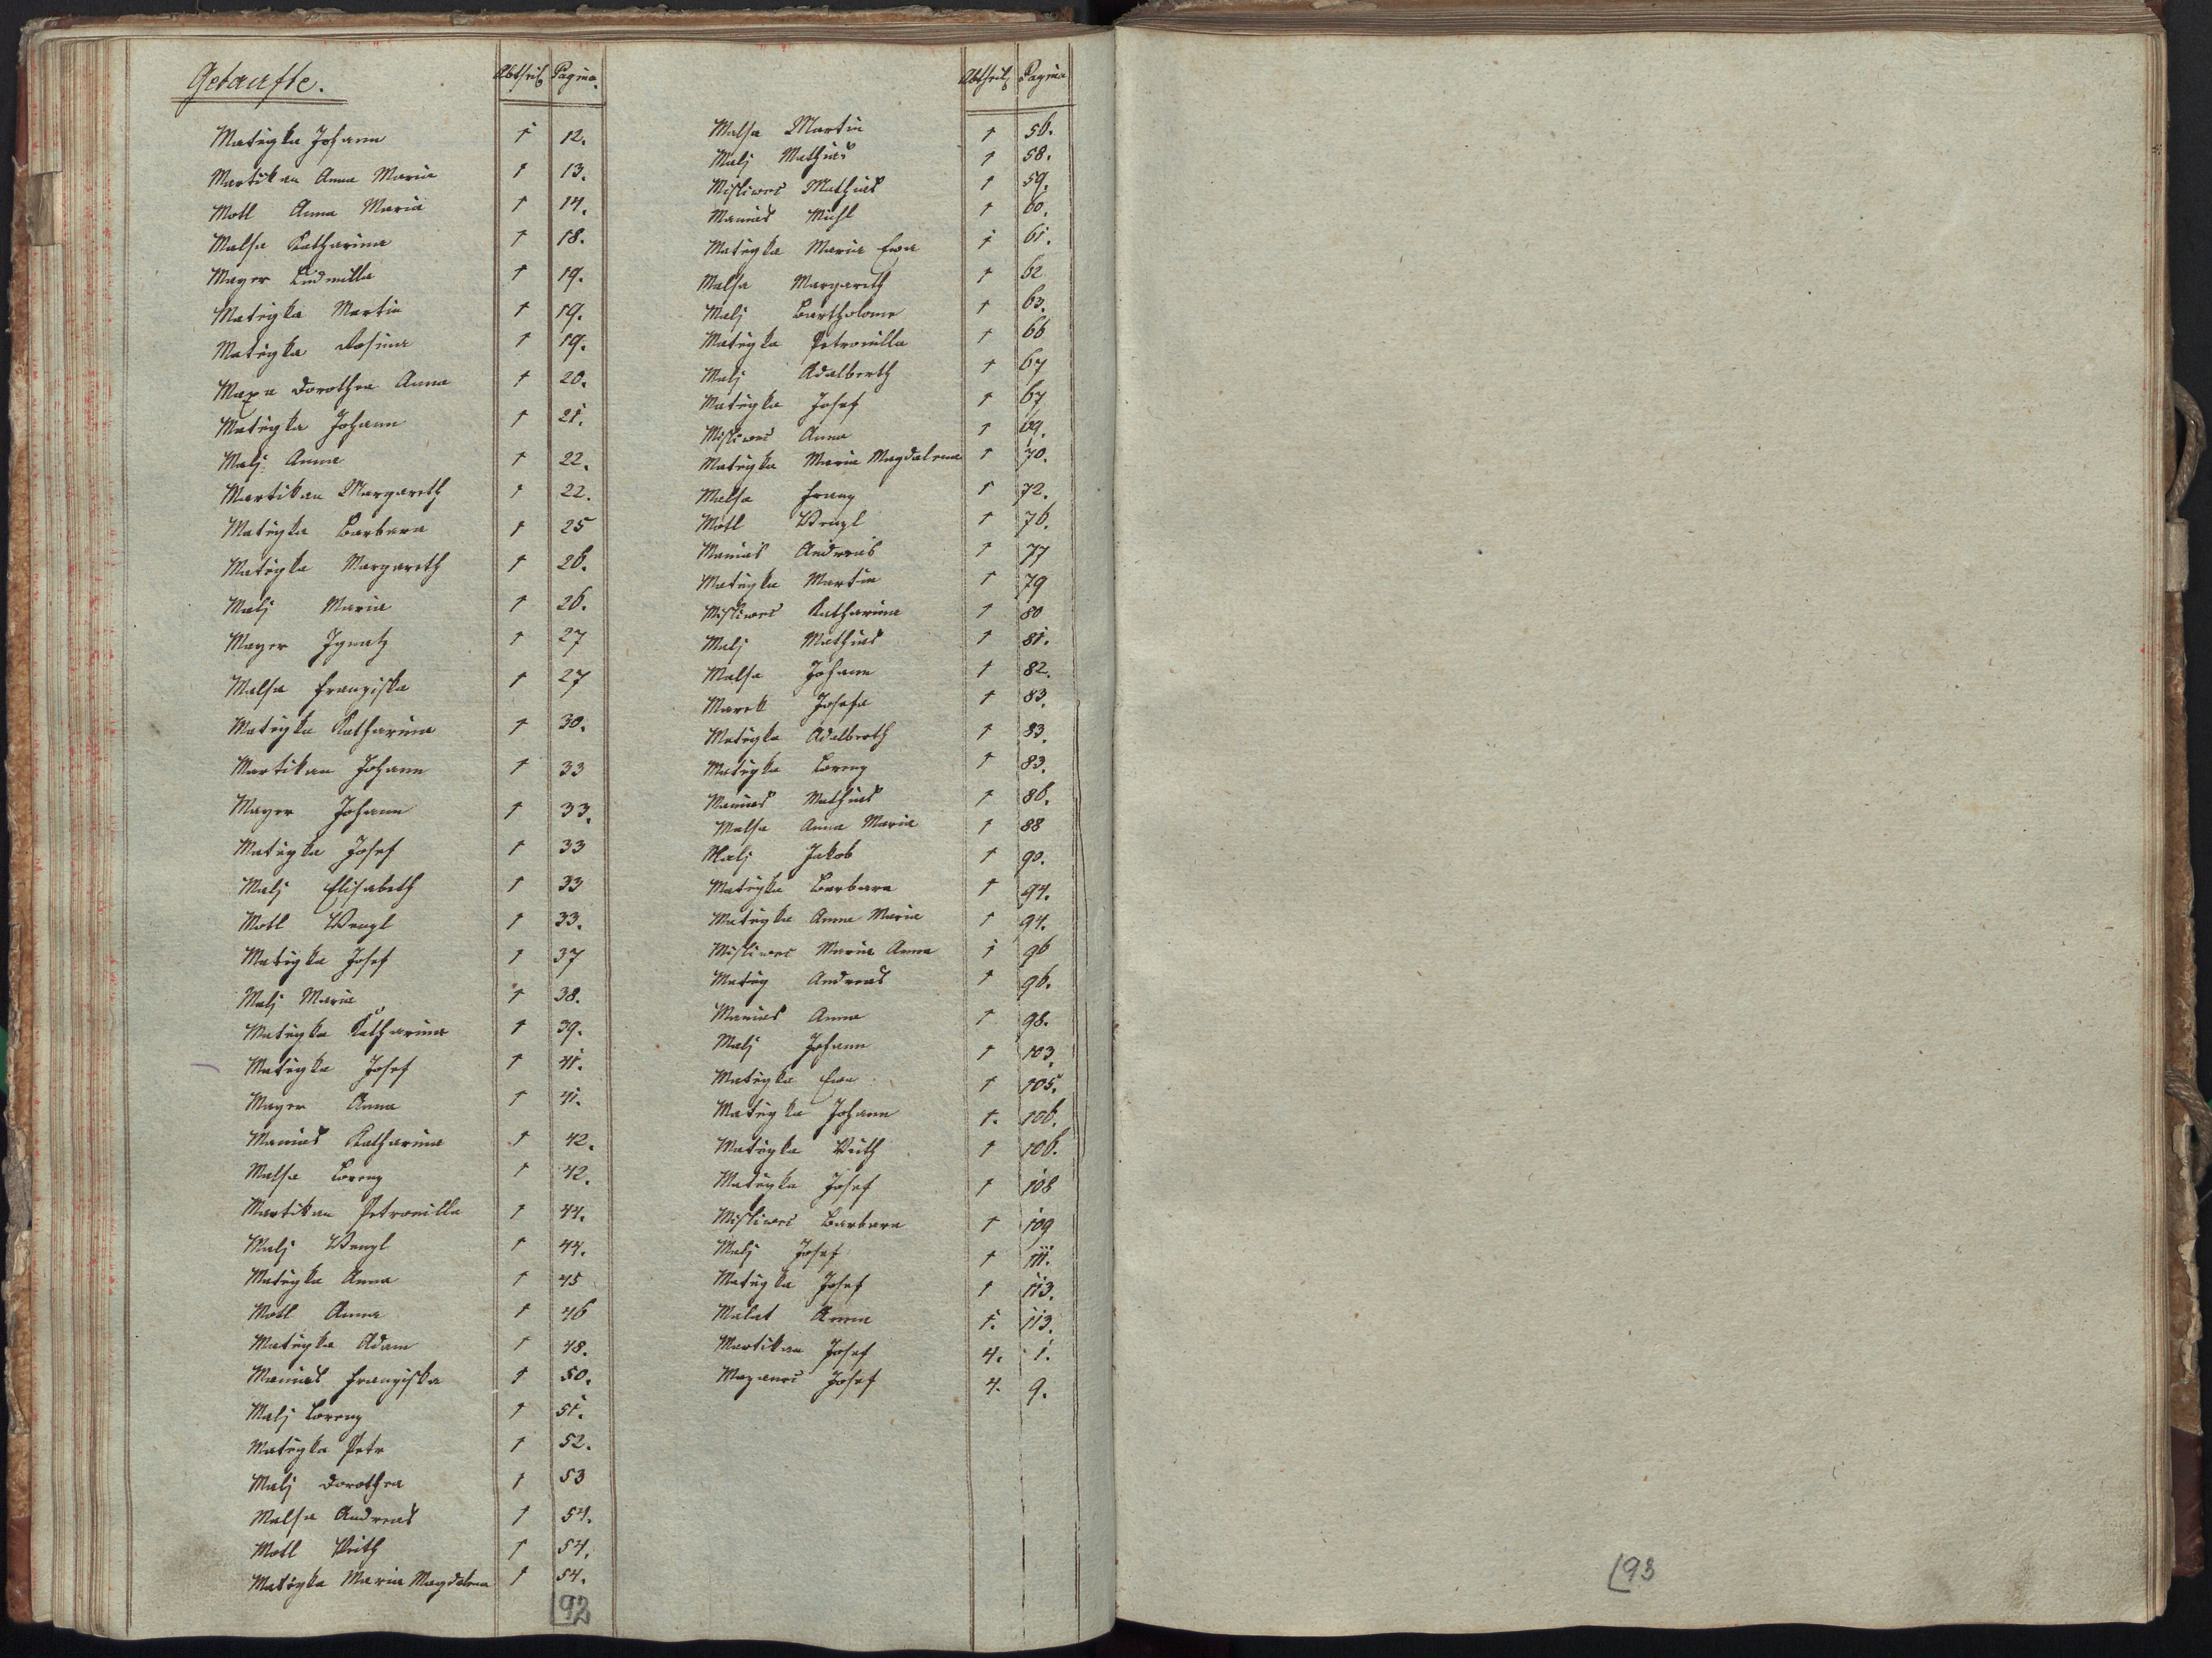 Getaufte.
Abtheil Pagina
Matégka Johann 1 12.
Martikan Anna Maria 1 13.
Motl Anna Maria 1 14.
Malsa Katharina 1 18.
Mayer Ludmilla 1 19.
Matégka Martin 1 19.
Matégka Rosina 1 19.
Maxa Dorothea Anna 1 20.
Matégka Johann 1 21.
Malj Anna 1 22.
Martikan Margareth 1 22.
Matégka Barbara 1 25
Matégka Margareth 1 26.
Malj Maria 1 26.
Mayer Ignatz 1 27
Malsa Franziska 1 27
Matégka Katharina 1 30.
Martikan Johann 1 33
Mayer Johann 1 33.
Matégka Josef 1 33
Malj Elisabeth 1 33
Motl Wenzl 1 33.
Matégka Josef 1 37
Malj Maria 1 38.
Matégka Katharina 1 39.
Matégka Josef 1 41.
Mayer Anna 1 41.
Manias Katharina 1 42.
Malsa Lorenz 1 42.
Martikan Petronilla 1 44.
Malj Wenzl 1 44.
Matégka Anna 1 45
Motl Anna 1 46
Matégka Adam 1 48.
Manias Franziska 1 50.
Malj Lorenz 1 51.
Matégka Petr 1 52.
Malj Dorothea 1 53
Malsa Andreas 1 54.
Motl Veith 1 54.
Matégka Maria Magdalena 1 54.
92
Abtheil Pagina
Malsa Martin 1 56.
Malj Mathias 1 58.
Misliwec Mathias 1 59.
Manias Michl 1 60.
Matégka Maria Ewa 1 61.
Malsa Margareth 1 62
Malj Bartholome 1 63.
Matégka Petronilla 1 66
Malj Adalberth 1 67
Matégka Josef 1 67
Misliwec Anna 1 69.
Matégka Maria Magdalena 1 70.
Malsa Franz 1 72.
Motl Wenzl 1 76.
Manias Andreas 1 77
Matégka Martin 1 79
Misliwec Katharina 1 80
Malj Mathias 1 81.
Malsa Johann 1 82.
Marek Josefa 1 83.
Matégka Adalberth 1 83.
Matégka Lorenz 1 83.
Manias Mathias 1 86.
Malsa Anna Maria 1 88
Malj Jakob 1 90.
Matégka Barbara 1 94.
Matégka Anna Maria 1 94.
Misliwec Maria Anna 1 96
Matég Andreas 1 96.
Manias Anna 1 98.
Malj Johann 1 103.
Matégka Ewa 1 105.
Matégka Johann 1. 106.
Matégka Veith 1 106.
Matégka Josef 1 108
Misliwec Barbara 1 109
Malj Josef 1 111.
Matégka Josef 1 113.
Malat Anna 1. 113.
Martikan Josef 4. 1.
Mazanec Josef 4. 9.
93